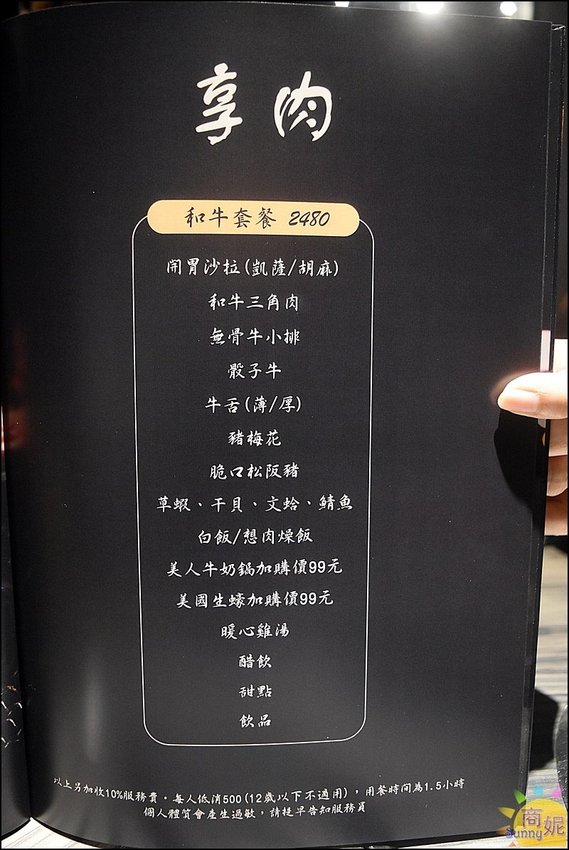 享肉
和牛套餐 2480
開胃沙拉(凱薩/胡麻)
和牛三角肉
無骨牛小排
骰子牛
牛舌(薄/厚)
豬梅花
脆口松阪豬
草蝦、干貝、文蛤、鯖魚
白飯/想肉燥飯
美人牛奶鍋加購價99元
美國生蠔加購價99元
暖心雞湯
醋飲
甜點
飲品
以上另加收10%服務費，每人低消500(12歲以下不適用)，用餐時間為1.5小時
個人體質會產生過敏，請提早告知服務員
商妮
Sunny